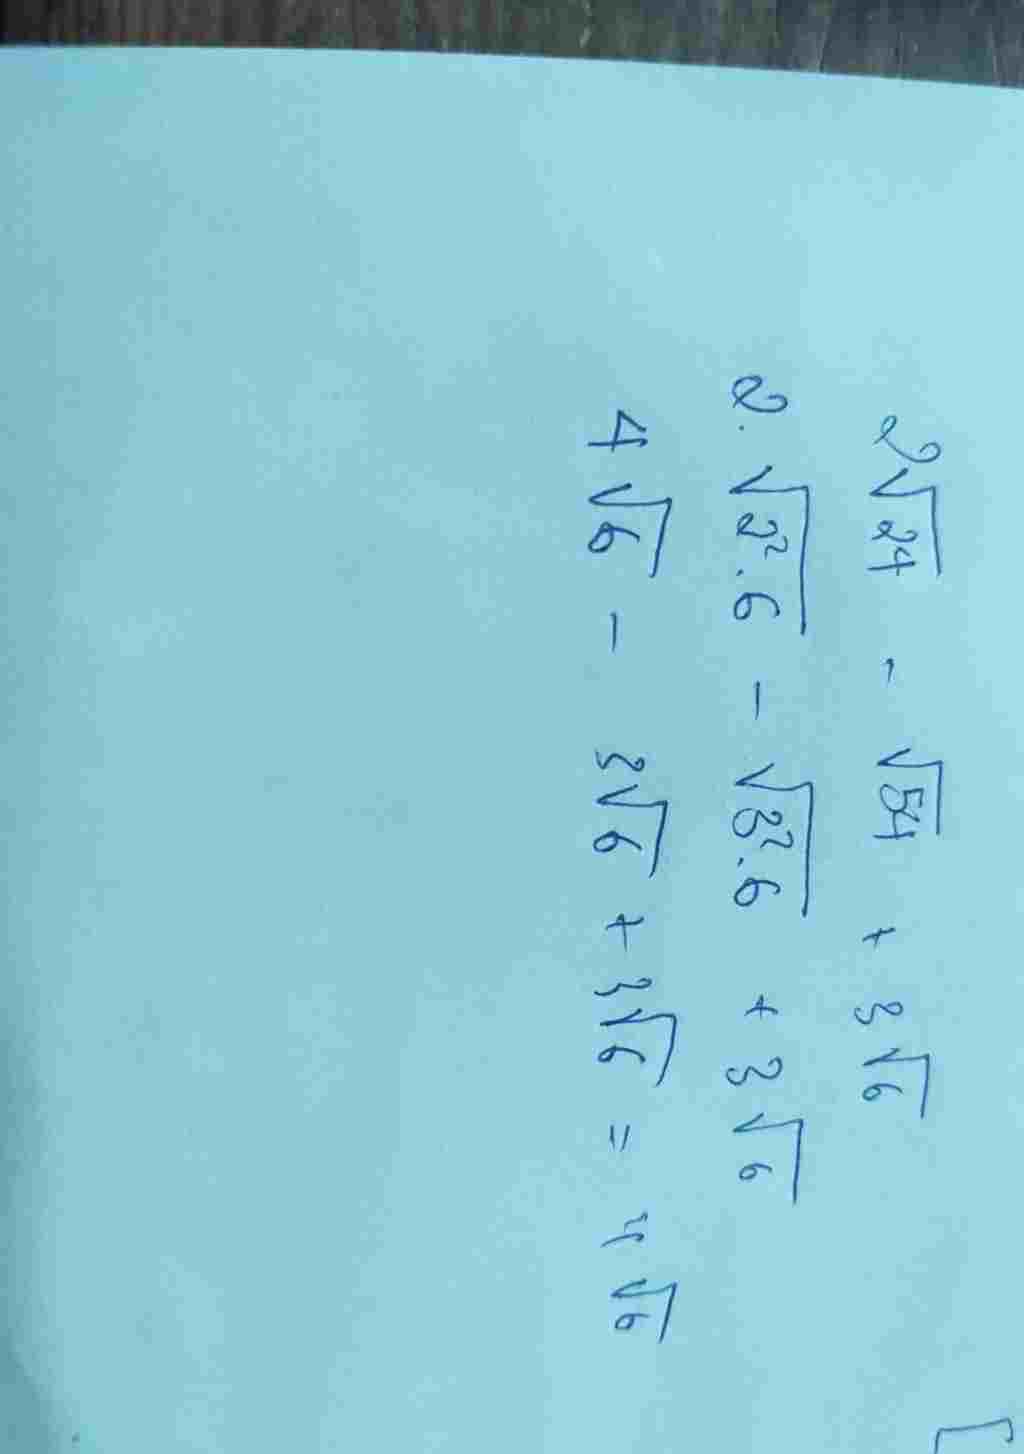 2√24 - √54 + 3√6
2. √2².6 - √3².6 + 3√6
4√6 - 3√6 + 3√6 = 4√6